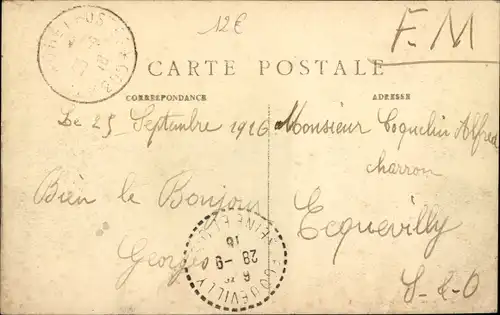 12€
F.M
CARTE POSTALE
CORRESPONDANCE
ADRESSE
Le 25 Septembre 1916
Monsieur Coquelin Alfred
charron
Bien le Bonjour
Ecquevilly
Georges
S-&-O
ECQUEVILLY
28-9
16